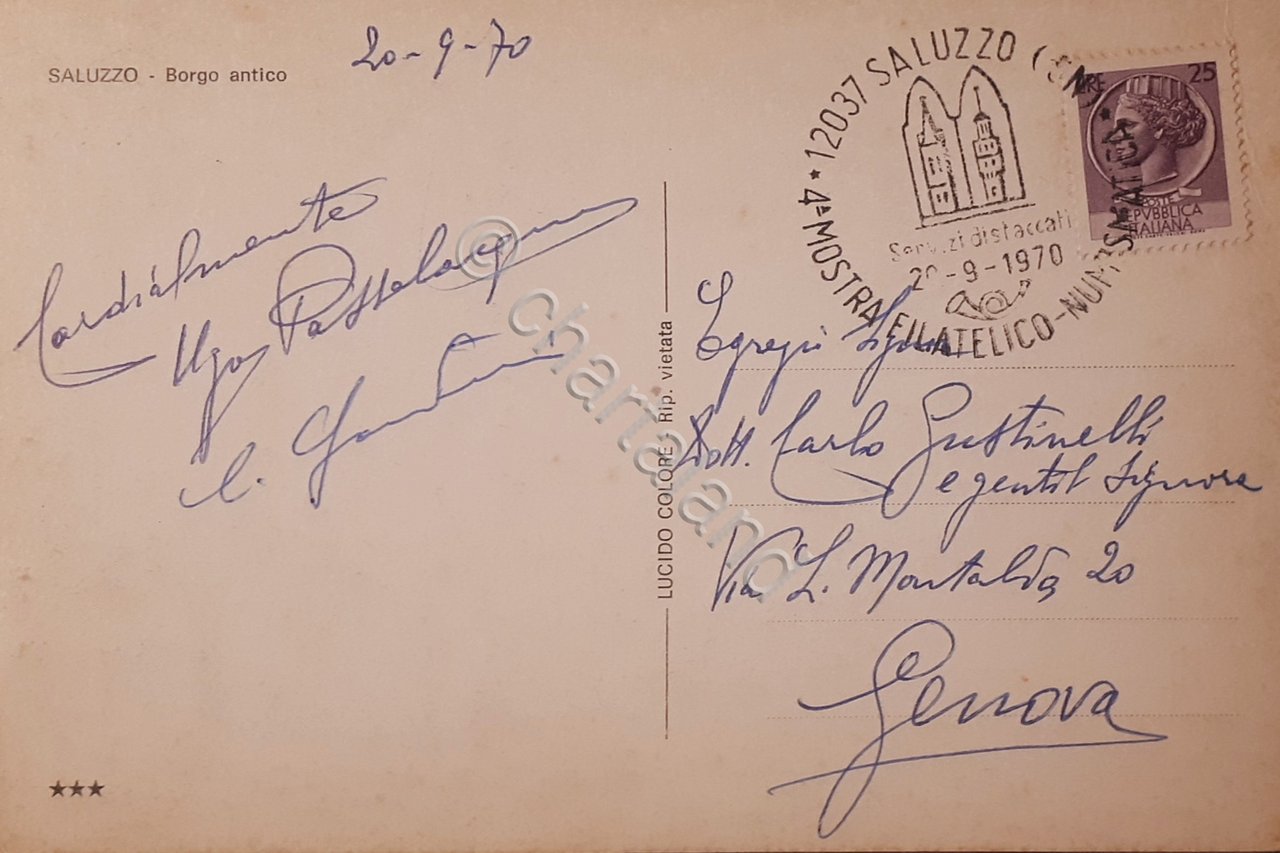 SALUZZO - Borgo antico
20-9-70
Cordialmente
Ugo
C.
LUCIDO COLORE - Rip. vietata
★★★
* 12037 SALUZZO (CN) *
4ª MOSTRA FILATELICO-NUMISMATICA
Servizi distaccati
20-9-1970
LIRE 25
POSTE
REPVBBLICA
ITALIANA
Egregi Signori
Dott. Carlo Gustinelli
e gentil Signora
Via L. Montaldo 20
Genova
© chartaland